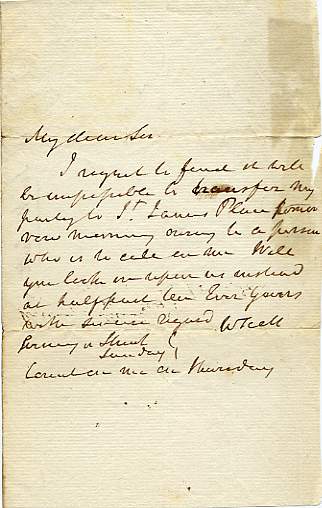 My dear Sir
I regret to find it will
be impossible to transfer my
party to St. James Place tomor
row morning owing to a person
who is to call on me Will
you look in upon us instead
at halfpast ten Ever Yours
with sincere regard W Scott
Jermyn Street
Sunday
on me on Thursday